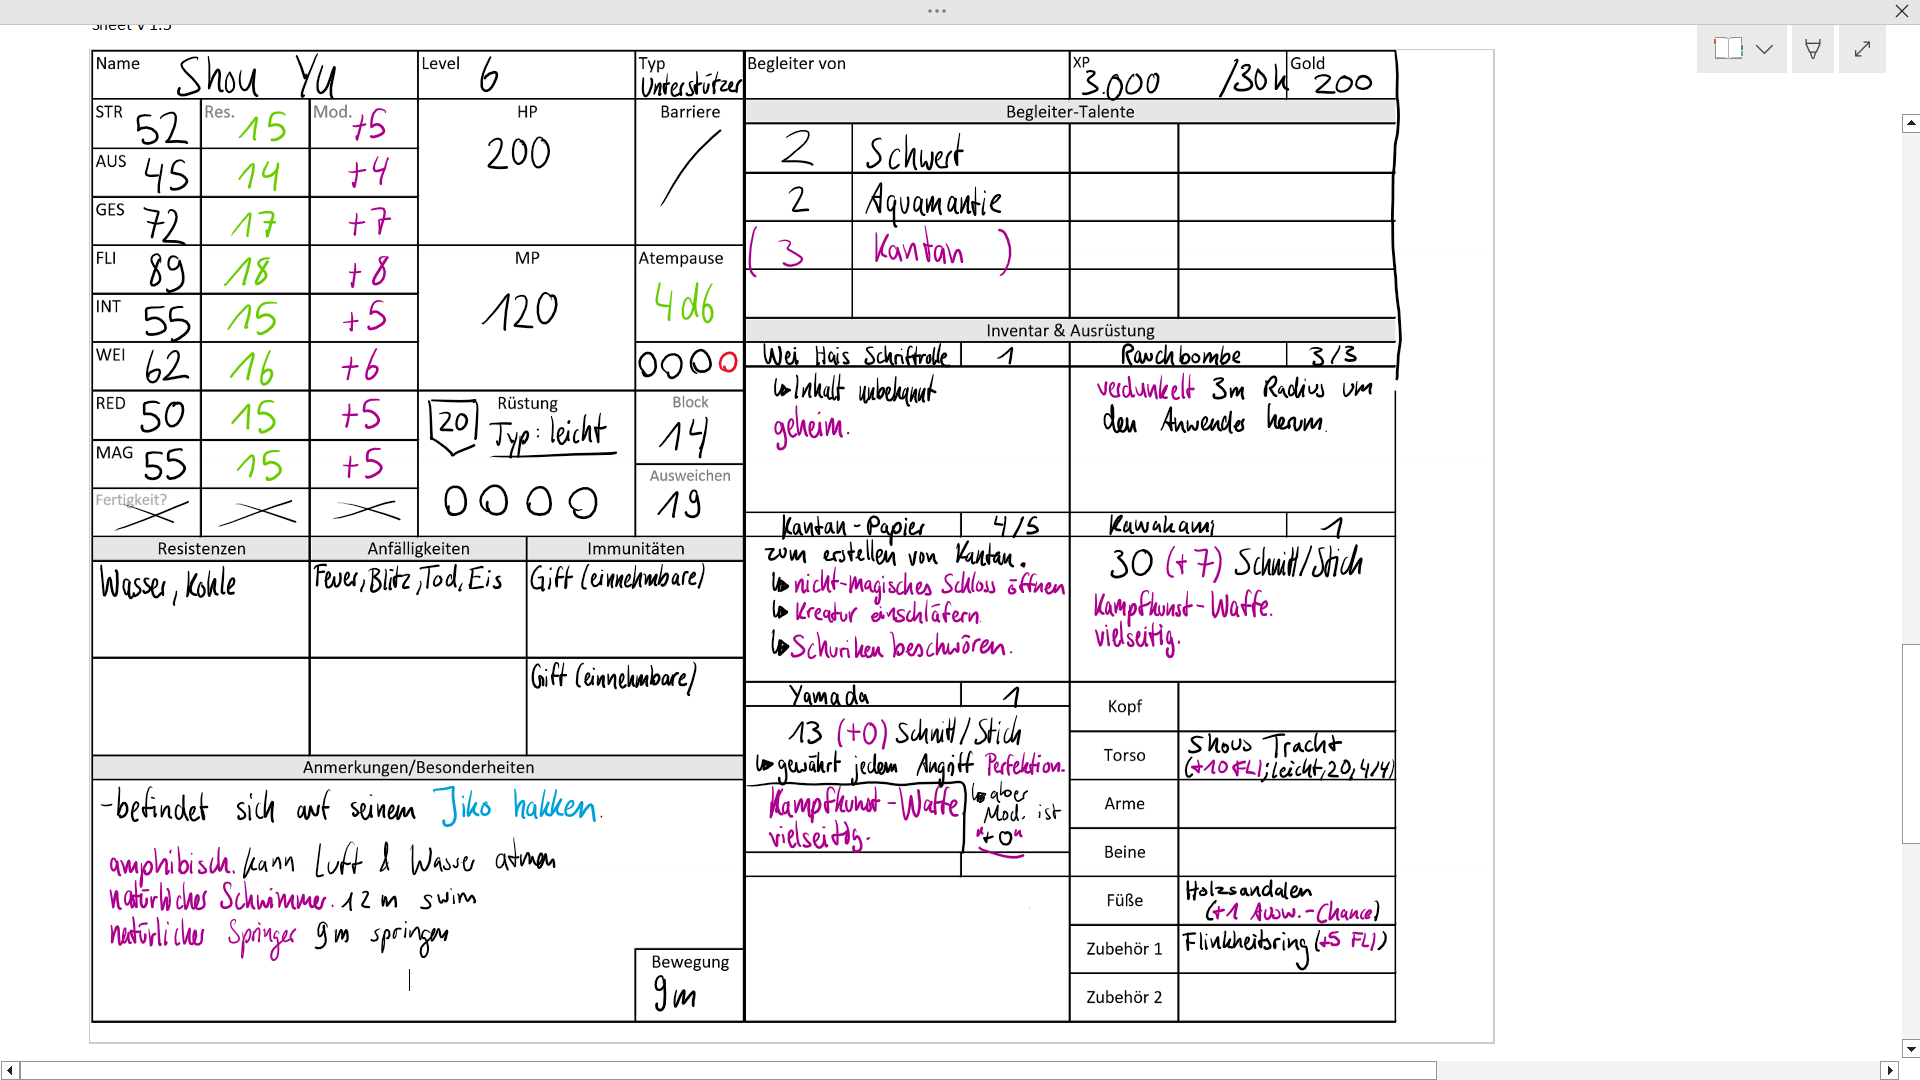 Sheet V 1.5
Name Shou Yu Level 6 Typ Unterstützer Begleiter von XP 3.000 /30k Gold 200
STR 52 Res. 15 Mod. +5 HP 200 Barriere /
AUS 45 14 +4
GES 72 17 +7
FLI 89 18 +8 MP 120 Atempause 4d6
INT 55 15 +5
WEI 62 16 +6
RED 50 15 +5 20 Rüstung Typ: leicht Block 14
MAG 55 15 +5 Ausweichen 19
Fertigkeit?
Resistenzen Anfälligkeiten Immunitäten
Wasser, Kohle Feuer, Blitz, Tod, Eis Gift (einnehmbare)
Gift (einnehmbare)
Anmerkungen/Besonderheiten
-befindet sich auf seinem Jiko hakken.
amphibisch. kann Luft & Wasser atmen
natürlicher Schwimmer. 12 m swim
natürlicher Springer 9m springen
Bewegung
9m
Begleiter-Talente
2 Schwert
2 Aquamantie
( 3 Kantan )
Inventar & Ausrüstung
Wei Hais Schriftrolle 1
Inhalt unbekannt
geheim.
Rauchbombe 3/3
verdunkelt 3m Radius um
den Anwender herum.
Kantan-Papier 4/5
zum erstellen von Kantan.
nicht-magisches Schloss öffnen
Kreatur einschläfern.
Schuriken beschwören.
Kawakami 1
30 (+7) Schnitt/Stich
Kampfkunst-Waffe.
vielseitig.
Yamada 1
13 (+0) Schnitt/Stich
gewährt jedem Angriff Perfektion.
Kampfkunst-Waffe
vielseitig.
aber
Mod. ist
"+0"
Kopf
Torso Shous Tracht
(+10 FLI; leicht, 20, 4/4)
Arme
Beine
Füße Holzsandalen
(+1 Ausw.-Chance)
Zubehör 1 Flinkheitsring (+5 FLI)
Zubehör 2